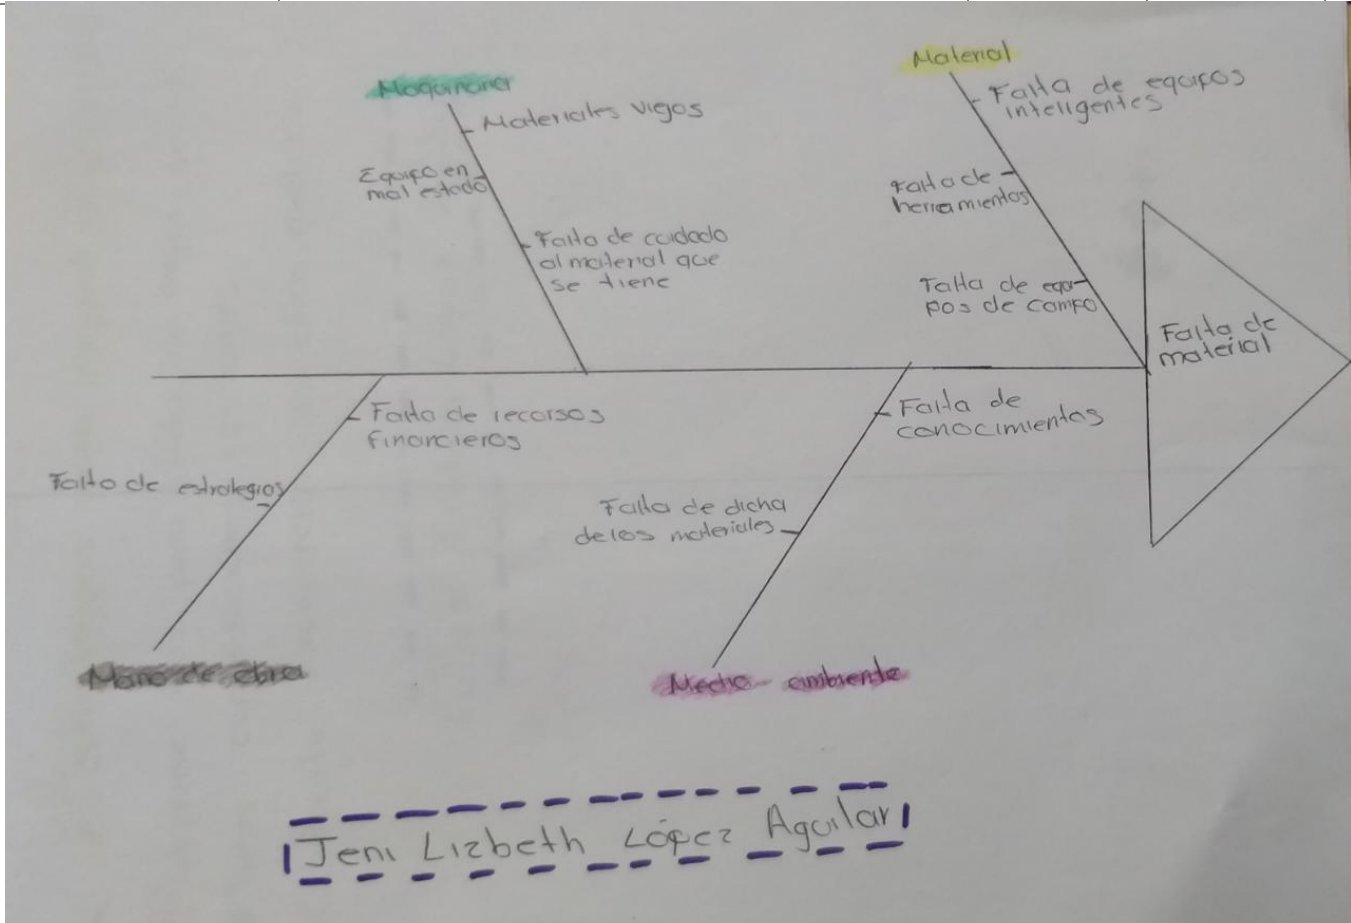 Maquinaria
Materiales viejos
Equipo en
mal estado
Falta de cuidado
al material que
se tiene
Material
Falta de equipos
inteligentes
Falta de
herramientas
Falta de equi-
pos de campo
Falta de
material
Falta de recursos
financieros
Falta de estrategias
Mano de obra
Falta de
conocimientos
Falta de dicha
de los materiales
Medio ambiente
Jeni Lizbeth López Aguilar